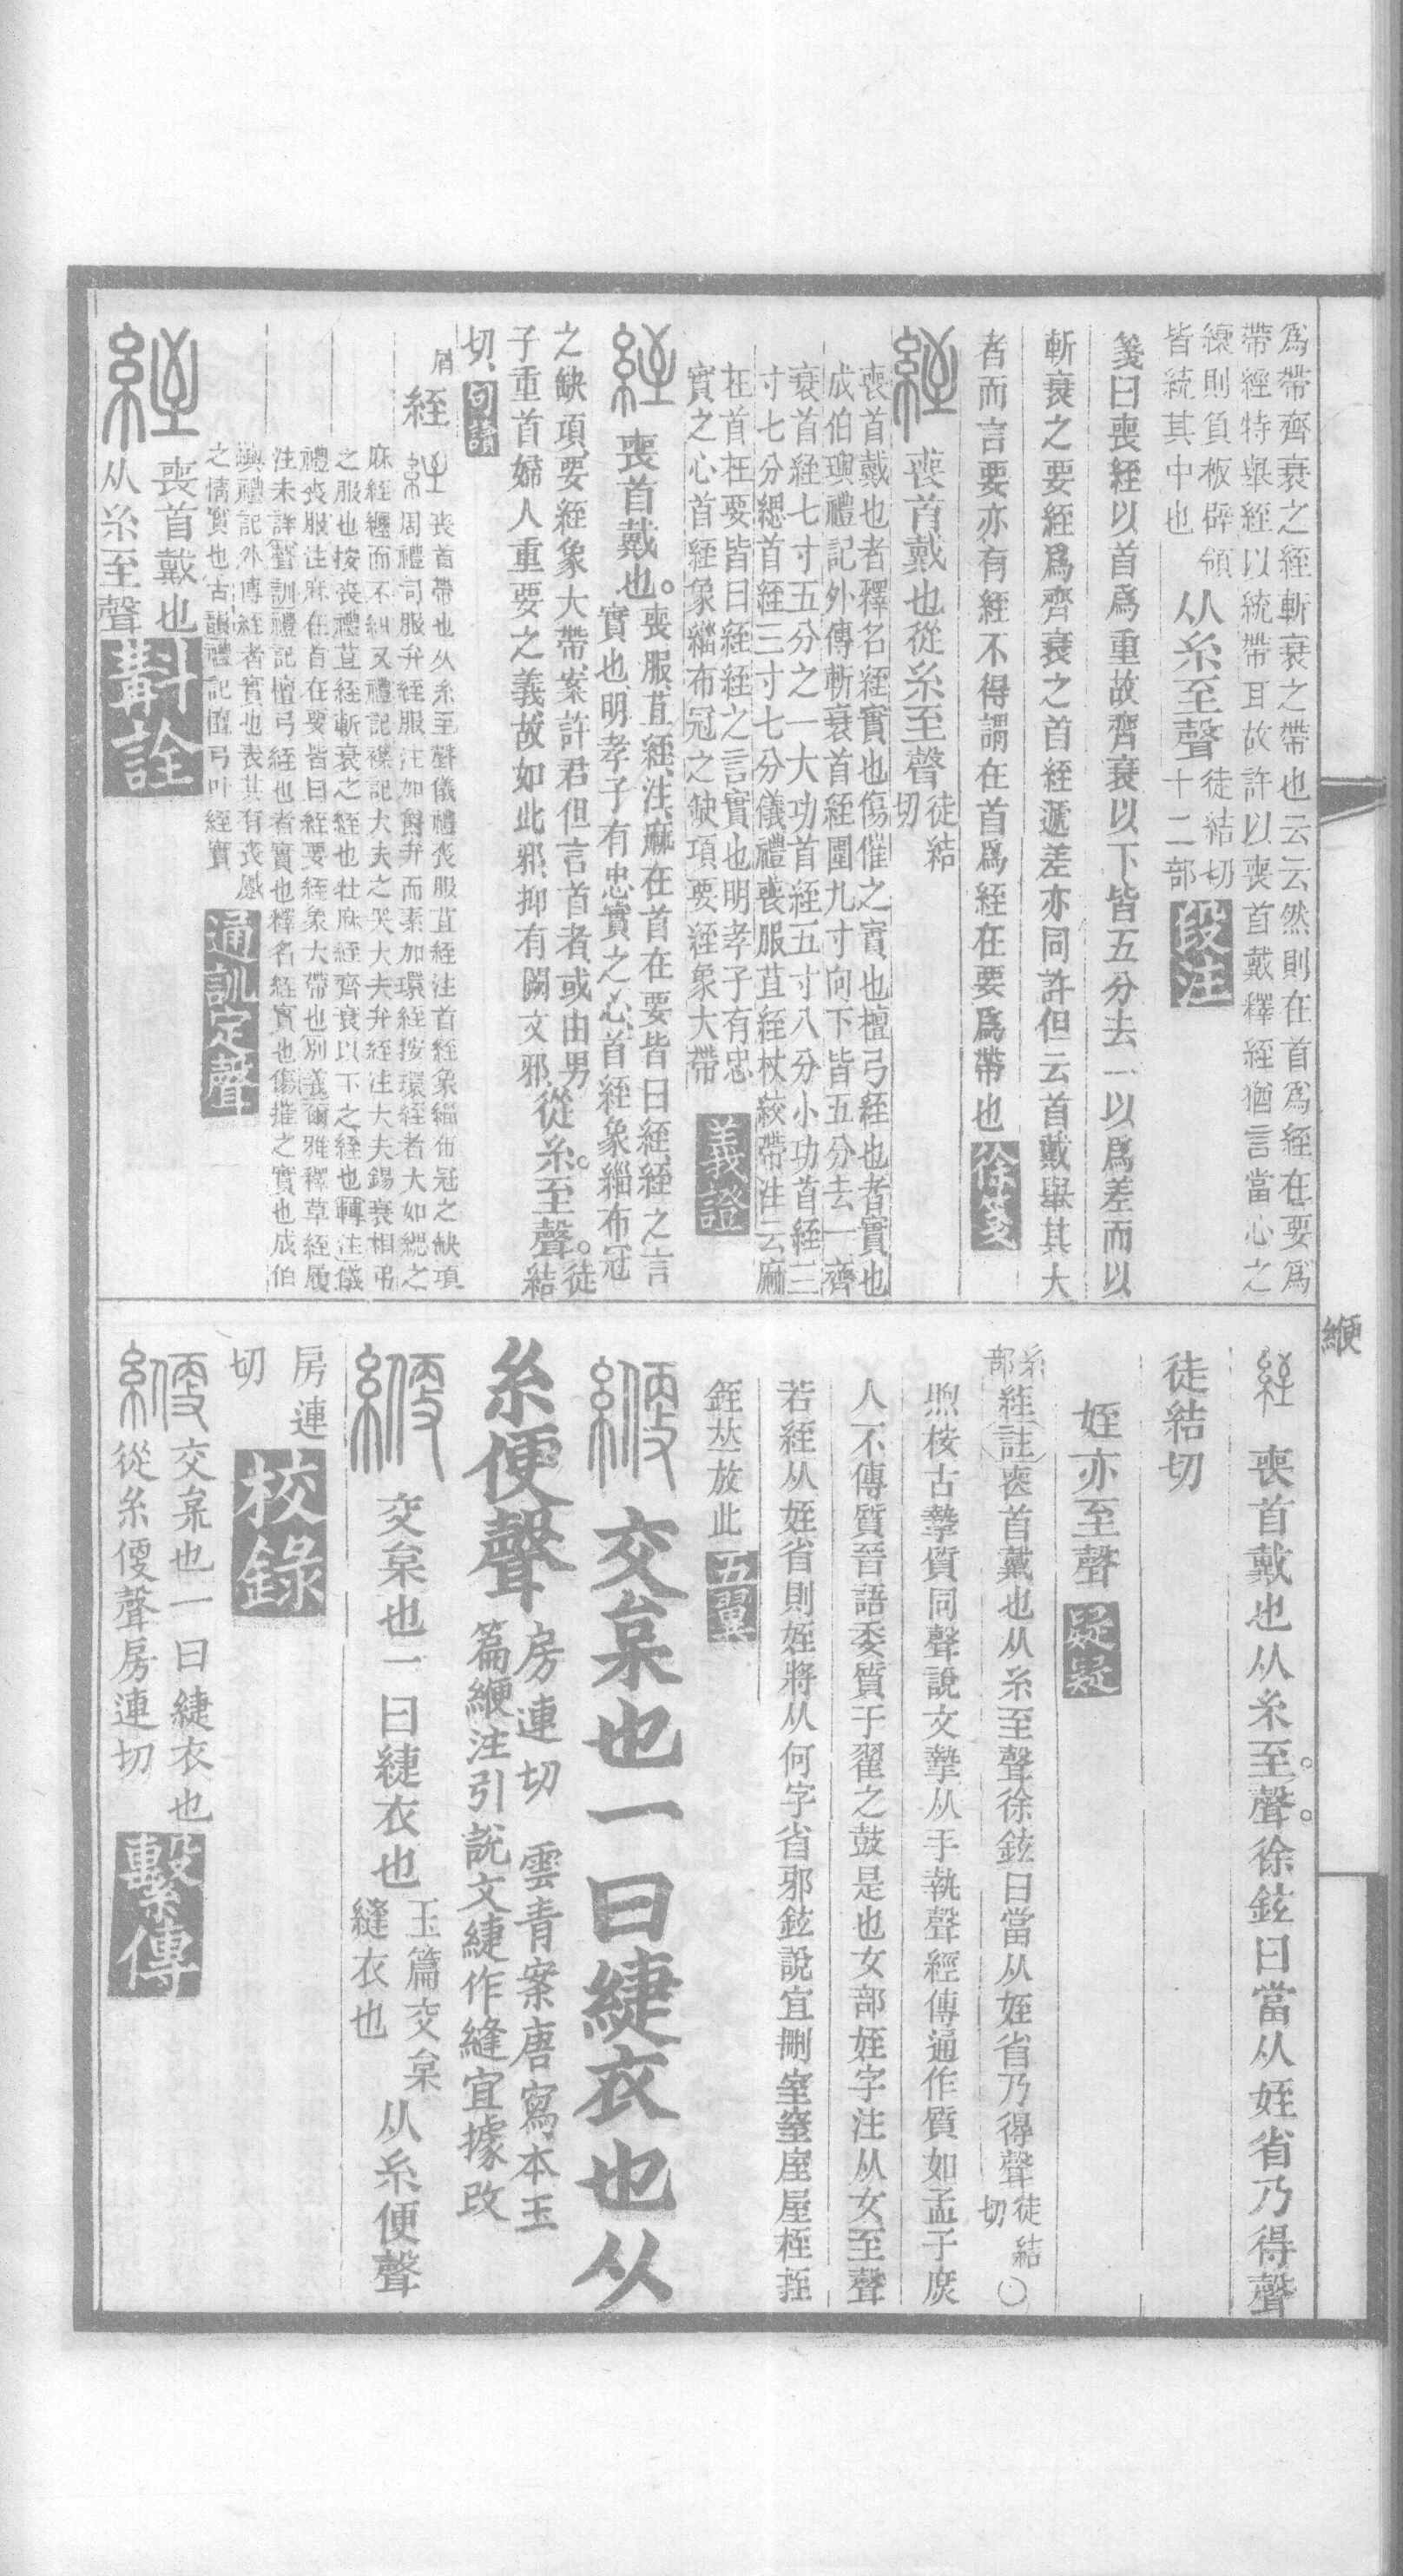 爲帶齊衰之絰斬衰之帶也云云然則在首爲絰在要爲
帶絰特舉絰以統帶耳故許以喪首戴釋絰猶言當心之
縗則負板辟領
皆統其中也
从糸至聲
徒結切
十二部
段注
箋曰喪絰以首爲重故齊衰以下皆五分去一以爲差而以
斬衰之要絰爲齊衰之首絰遞差亦同許但云首戴舉其大
者而言要亦有絰不得謂在首爲絰在要爲帶也
徐箋
絰
喪首戴也從糸至聲
徒結
切
喪首戴也者釋名絰實也傷摧之實也檀弓絰也者實也
成伯璵禮記外傳斬衰首絰圍九寸向下皆五分去一齊
衰首絰七寸五分之一大功首絰五寸八分小功首絰三
寸七分緦首絰三寸七分儀禮喪服苴絰杖絞帶注云麻
在首在要皆曰絰絰之言實也明孝子有忠
實之心首絰象緇布冠之缺項要絰象大帶
義證
絰
喪首戴也。
喪服苴絰注麻在首在要皆曰絰絰之言
實也明孝子有忠實之心首絰象緇布冠
之缺項要絰象大帶案許君但言首者或由男
子重首婦人重要之義故如此邪抑有闕文邪
從糸。至聲。
徒
結
切
句讀
屑
絰
喪首帶也从糸至聲儀禮喪服苴絰注首絰象緇布冠之缺項
周禮司服弁絰服注如爵弁而素加環絰按環絰者大如緦之
麻絰纏而不糾又禮記襍記大夫之哭大夫弁絰注大夫錫衰相弔
之服也按喪禮苴絰斬衰之絰也牡麻絰齊衰以下之絰也轉注儀
禮喪服注麻在首在要皆曰絰要絰象大帶也別義爾雅釋草絰履
注未詳聲訓禮記檀弓絰也者實也釋名絰實也傷摧之實也成伯
璵禮記外傳絰者實也表其有哀慼
之情實也古韻禮記檀弓叶絰實
通訓定聲
絰
喪首戴也
从糸至聲
斠詮
緶
絰
喪首戴也从糸至。聲。徐鉉曰當从姪省乃得聲
徒結切
姪亦至聲
疑疑
糸
部
絰
註
喪首戴也从糸至聲徐鉉曰當从姪省乃得聲
徒結
切
〇
煦桉古摯質同聲說文摯从手執聲經傳通作質如孟子庶
人不傳質晉語委質于翟之鼓是也女部姪字注从女至聲
若絰从姪省則姪將从何字省邪鉉說宜刪室窒庢屋桎挃
銍厺放此
五翼
緶
交枲也一曰緁衣也从
糸便聲
房連切　雲青案唐寫本玉
篇緶注引說文緁作縫宜據改
緶
交枲也一曰緁衣也
玉篇交枲
縫衣也
从糸便聲
房連
切
校錄
緶
交枲也一曰緁衣也
從糸便聲房連切
繫傳